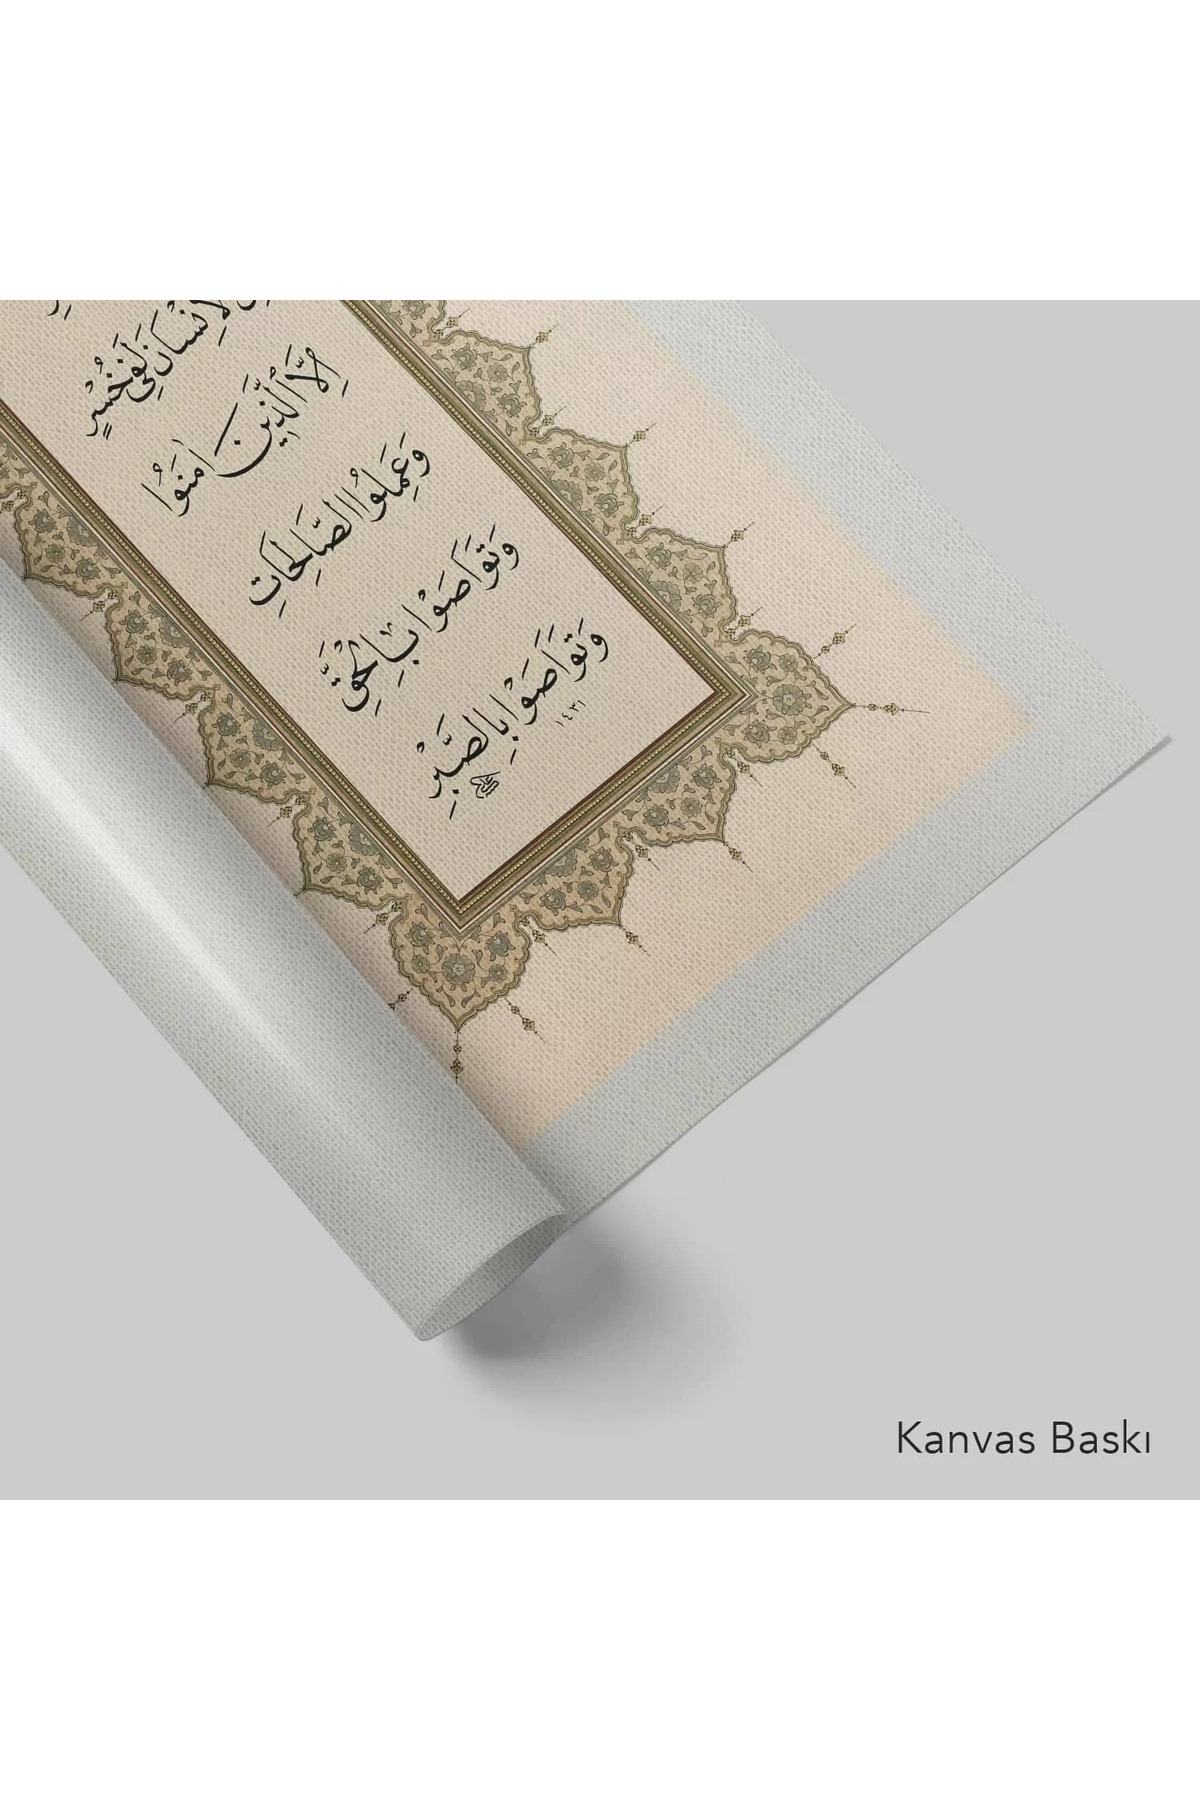 الْإِنْسَانَ لَفِي خُسْرٍ
إِلَّا الَّذِينَ اٰمَنُوا
وَعَمِلُوا الصَّالِحَاتِ
وَتَوَاصَوْا بِالْحَقِّ
وَتَوَاصَوْا بِالصَّبْرِ
١٤٣١
Kanvas Baskı